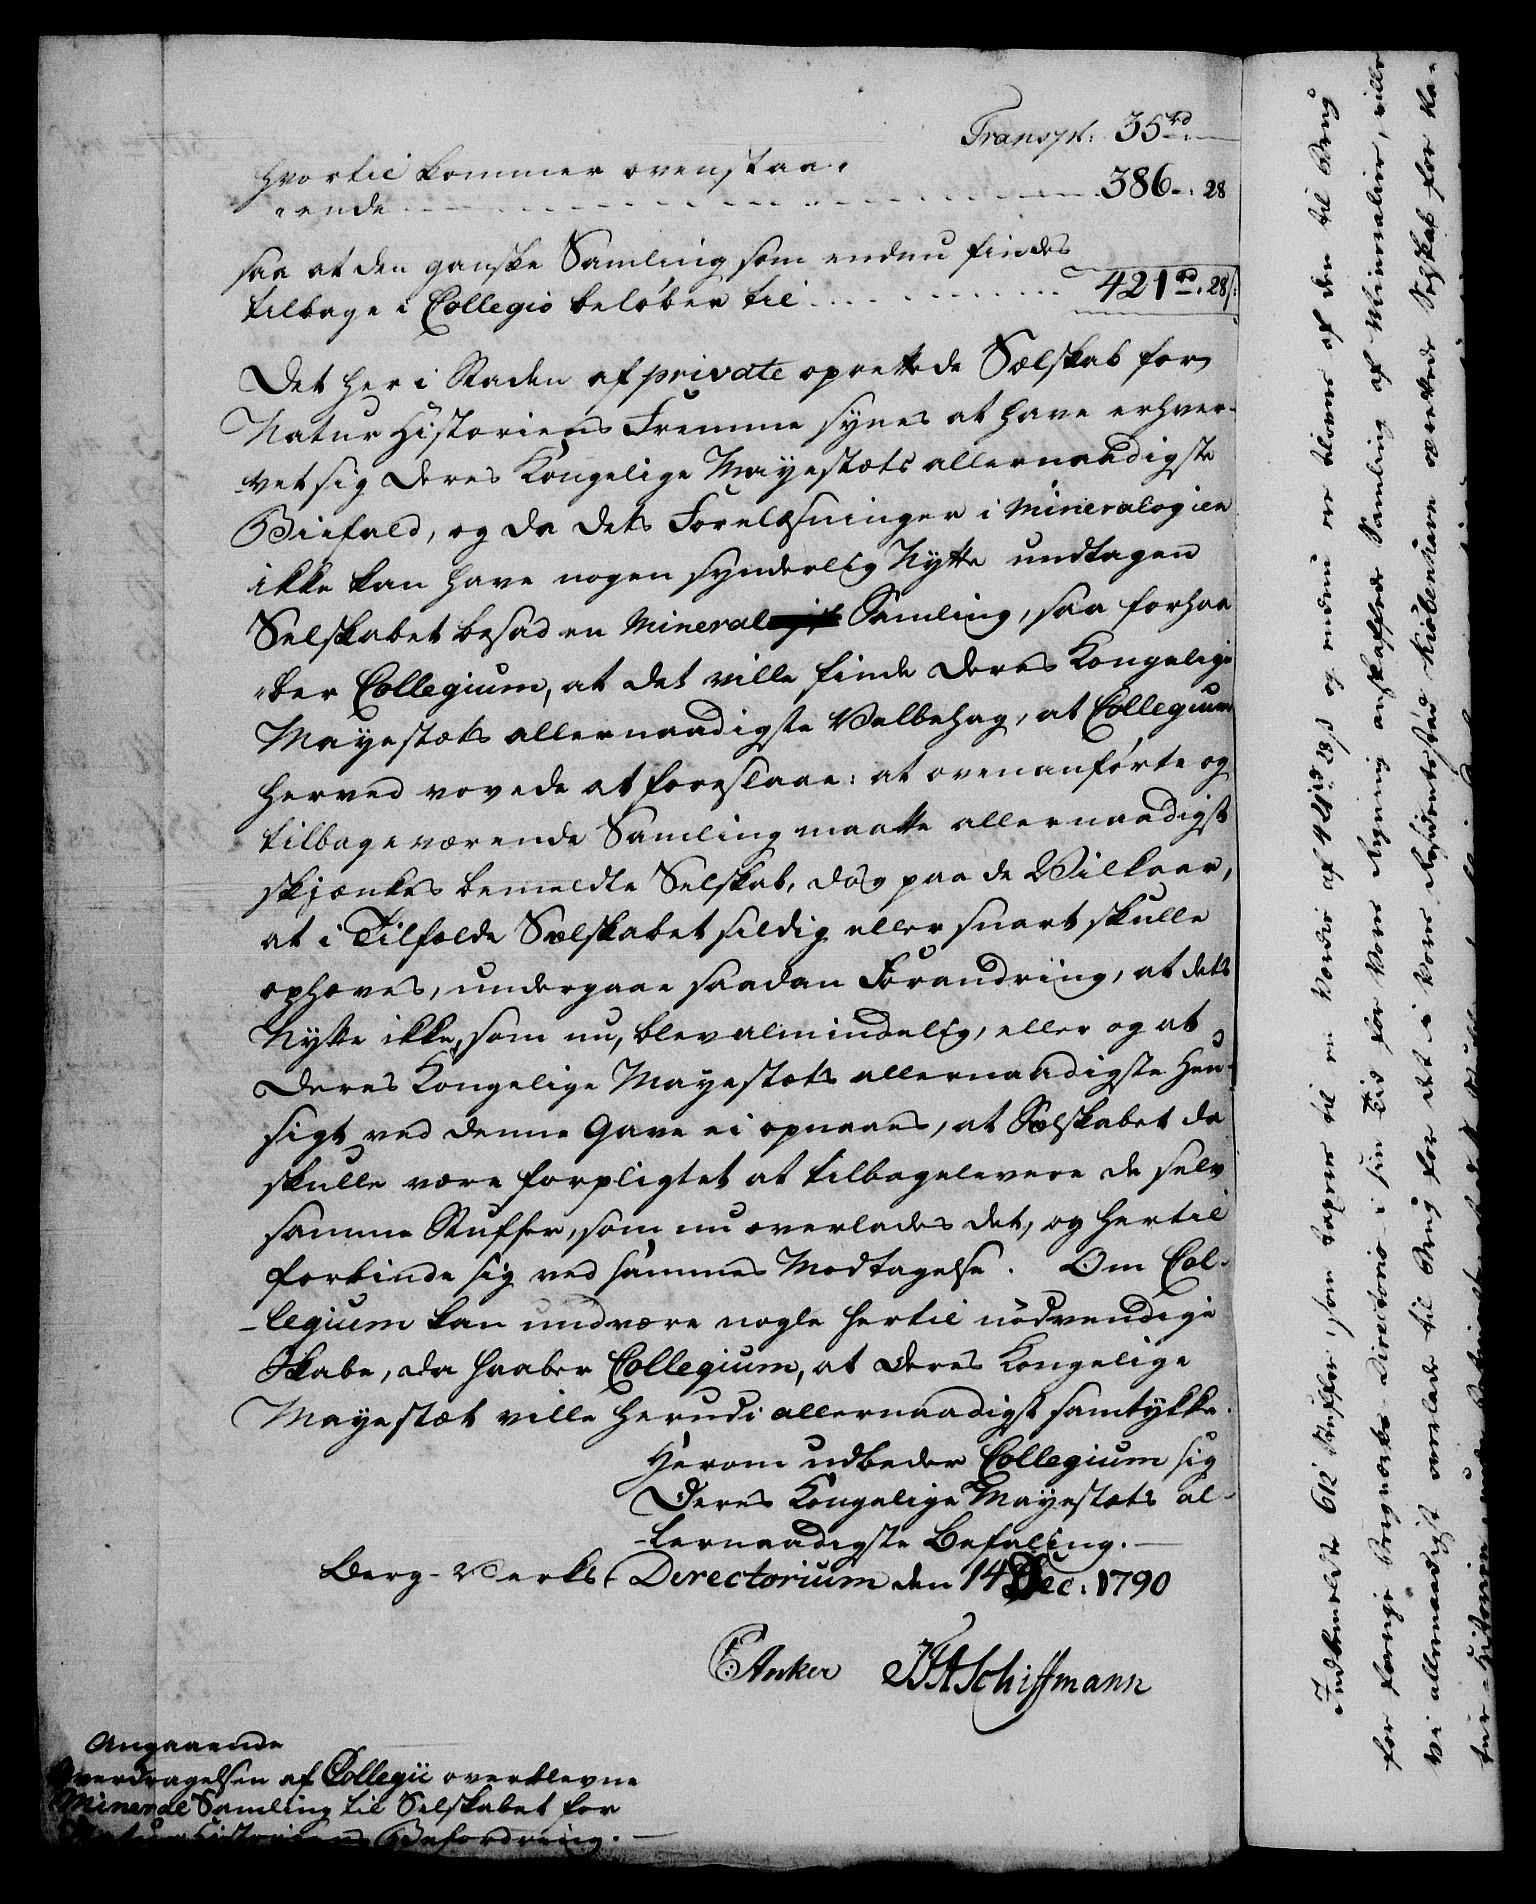 Transp: 35rd.—
hvortil kommer ovenstaa-
-ende - - - - - - - - - - - 386-. 28
saa at den ganske Samling som endnu findes
tilbage i Collegio beløber til . . . . . . . . . 421rd. 28s:
Det her i Staden af private oprettede Sælskab for
Natur Historiens Fremme synes at have erhver-
-vet sig Deres Kongelige Mayestæts allernaadigste
Biefald, og da dets Forelæsninger i Mineralogien
ikke kan have nogen synderlig Nytte undtagen
Selskabet besad en Mineral Samling, saa forhaa
-ber Collegium, at det ville finde Deres Kongelige
Mayestæts allernaadigste Velbehag, at Collegium
herved vovede at foreslaae: at ovenanførte og
tilbageværende Samling maatte allernaadigst
skjænkes bemeldte Selskab, dog paa de Vilkaar,
at i Tilfælde Sælskabet sildig eller snart skulle
ophæves, undergaae saadan Forandring, at dets
Nytte ikke, som nu, blev almindelig, eller og at
Deres Kongelige Mayestæts allernaadigste Hen-
sigt ved denne Gave ei opnaaes, at Sælskabet da
skulle være forpligtet at tilbagelevere de selv
samme Stuffer, som nu overlades det, og hertil
forbinde sig ved sammes Modtagelse. Om Col-
-legium kan undvære nogle hertil nödvendige
Skabe, da haaber Collegium, at Deres Kongelige
Mayestæt ville herudi allernaadigst samtykke.
Herom udbeder Collegium sig
Deres Kongelige Mayestæts al-
-lernaadigste Befaling. —
Berg-Verks Directorium den 14 Dec: 1790
C: Anker JFASchiffmann
Angaaende
Overdragelsen af Collegii overblevne
Mineral Samling til Selskabet for
Natur Historiens Befordring. —
Indbemeldte 612 Stuffer, som tages til en Værdie af 421rd 28s og endnu er blevne af den til Brug
for forrige Bergværks-Directorio i sin Tid for Vores Regning anskaffede Samling af Mineralier, ville
Vi allernaadigst overlade til Brug for det i Vores Residentsstad Kiøbenhavn oprettede Selskab for Na-
tur-Historien